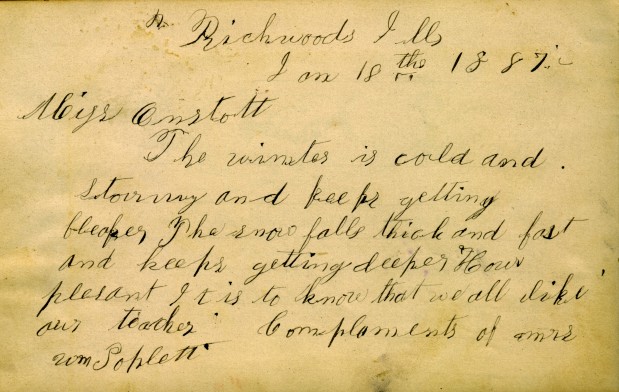 Richwoods Ills
Jan 18 the 1887
Miss Onstott
The winter is cold and
stormy and keeps getting
bleaker The snow falls thick and fast
and keeps getting deeper How
plesant It is to know that we all like
our teacher Complaments of mrs
wm Poplett